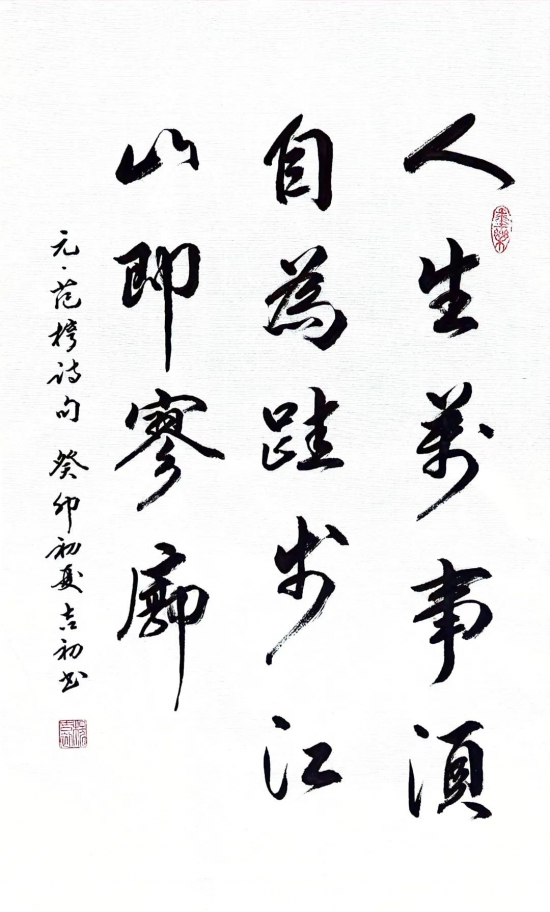 人生萬事須
自為跬步江
山即寥廓
元·范梈诗句 癸卯初夏吉初书